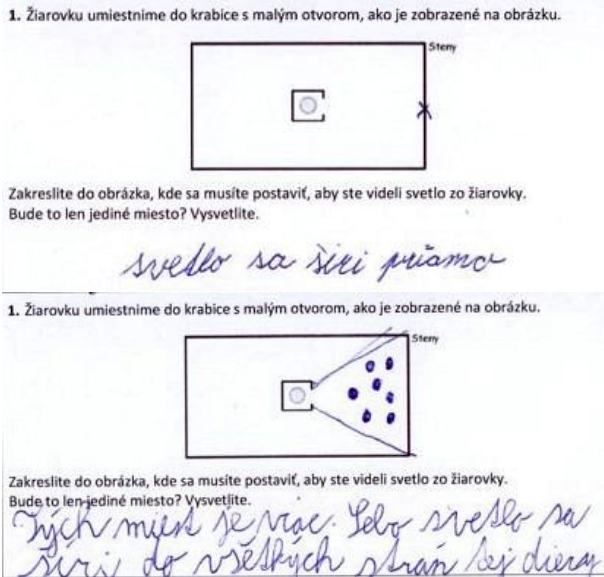 1. Žiarovku umiestnime do krabice s malým otvorom, ako je zobrazené na obrázku.
Steny
Zakreslite do obrázka, kde sa musíte postaviť, aby ste videli svetlo zo žiarovky.
Bude to len jediné miesto? Vysvetlite.
svetlo sa šíri priamo
1. Žiarovku umiestnime do krabice s malým otvorom, ako je zobrazené na obrázku.
Steny
Zakreslite do obrázka, kde sa musíte postaviť, aby ste videli svetlo zo žiarovky.
Bude to len jediné miesto? Vysvetlite.
Tých miest je viac. Lebo svetlo sa
šíri do všetkých strán tej diery